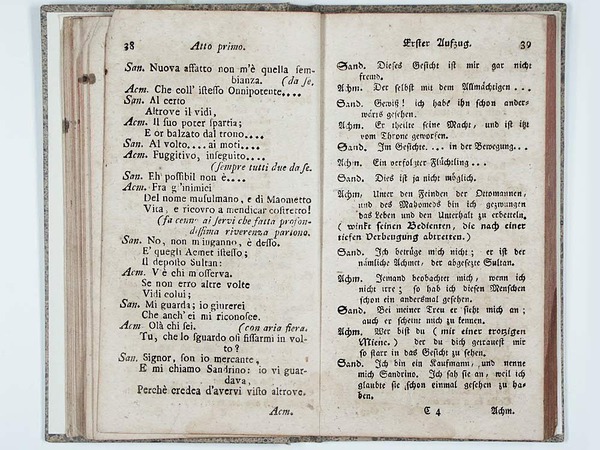 38
Atto primo.
San. Nuova affatto non m'è quella sem-
bianza. (da se.
Acm. Che coll' istesso Onnipotente....
San. Al certo
Altrove il vidi,
Acm. Il suo poter spartia;
E or balzato dal trono....
San. Al volto.... ai moti....
Acm. Fuggitivo, inseguito....
(sempre tutti due da se.
San. Eh' possibil non è....
Acm. Fra gl'inimici
Del nome musulmano, e di Maometto
Vita, e ricovro a mendicar costretto!
(fa cenno ai servi che fatta profon-
dissima riverenza partono.
San. No, non m'inganno, è desso.
E' quegli Acmet istesso;
Il deposto Sultan!
Acm. V'è chi m'osserva.
Se non erro altre volte
Vidi colui;
San. Mi guarda; io giurerei
Che anch' ei mi riconosce.
Acm. Olà chi sei. (con aria fiera.
Tu, che lo sguardo osi fissarmi in vol-
to?
San. Signor, son io mercante,
E mi chiamo Sandrino: io vi guar-
dava,
Perchè credea d'avervi visto altrove.
Acm.
Erster Aufzug.
39
Sand. Dieses Gesicht ist mir gar nicht
fremd.
Achm. Der selbst mit dem Allmächtigen ...
Sand. Gewiß! ich habe ihn schon anders
wärts gesehen.
Achm. Er theilte seine Macht, und ist izt
vom Throne geworfen.
Sand. Im Gesichte. ... in der Bewegung...
Achm. Ein verfolgter Flüchtling ...
Sand. Dies ist ja nicht möglich.
Achm. Unter den Feinden der Ottomannen,
und des Mahomeds bin ich gezwungen
das Leben und den Unterhalt zu erbetteln.
( winkt seinen Bedienten, die nach einer
tiefen Verbeugung abtretten.)
Sand. Ich betrüge mich nicht; er ist der
nämliche Achmet, der abgesezte Sultan.
Achm. Jemand beobachtet mich, wenn ich
nicht irre; so hab ich diesen Menschen
schon ein andersmal gesehen.
Sand. Bei meiner Treu er sieht mich an;
auch er scheint mich zu kennen.
Achm. Wer bist du ( mit einer trozigen
Miene. ) der du dich getrauest mir
so starr in das Gesicht zu sehen.
Sand. Ich bin ein Kaufmann, und nenne
mich Sandrino. Ich sah sie an, weil ich
glaubte sie schon einmal gesehen zu ha-
ben.
C 4
Achm.